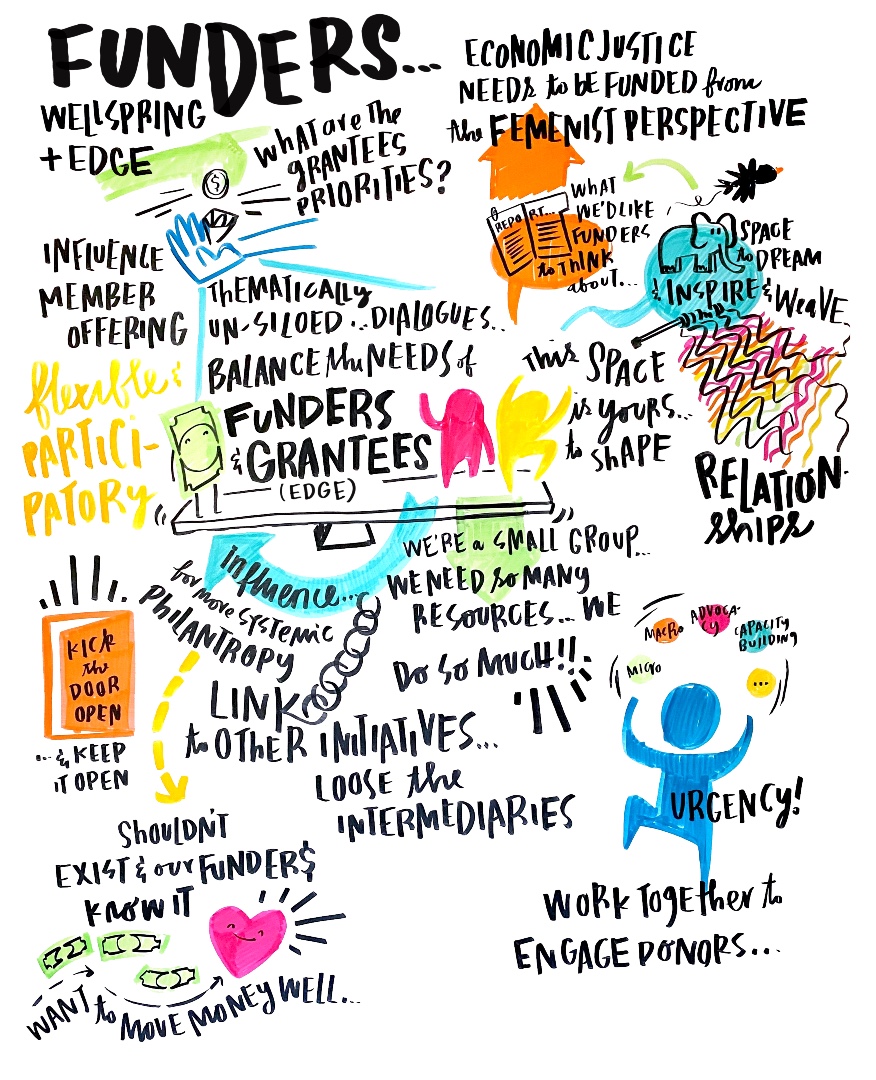 FUNDERS...
WELLSPRING
+ EDGE
WHAT are the
GRANTEES
PRIORITIES?
ECONOMIC JUSTICE
NEEDS to BE FUNDED from
the FEMENIST PERSPECTIVE
$
REPORT...
WHAT
WE'D LIKE
FUNDERS
to THINK
about...
SPACE
to DREAM
& INSPIRE & WeaVE
RELATION-
ships
INFLUENCE
MEMBER
OFFERING
THEMATICALLY
UN-SILOED... DIALOGUES...
BALANCE the NEEDS of
FUNDERS
& GRANTEES
(EDGE)
This SPACE
is yours...
to SHAPE
flexible &
PARTICI-
PATORY
influence...
for more SYSTEMIC
PHILANTROPY
WE'RE a SMALL GROUP...
WE NEED so MANY
RESOURCES... WE
DO SO MUCH!!
KICK
the
DOOR
OPEN
...& KEEP
IT OPEN
LINK
to OTHER INITIATIVES...
LOOSE the
INTERMEDIARIES
MICRO
MACRO
ADVOCA-
CY
CAPACITY
BUILDING
...
URGENCY!
WORK TOGETHER to
ENGAGE DONORS...
SHOULDN'T
EXIST & our FUNDER$
KNOW IT
WANT to MOVE MONEY WELL...